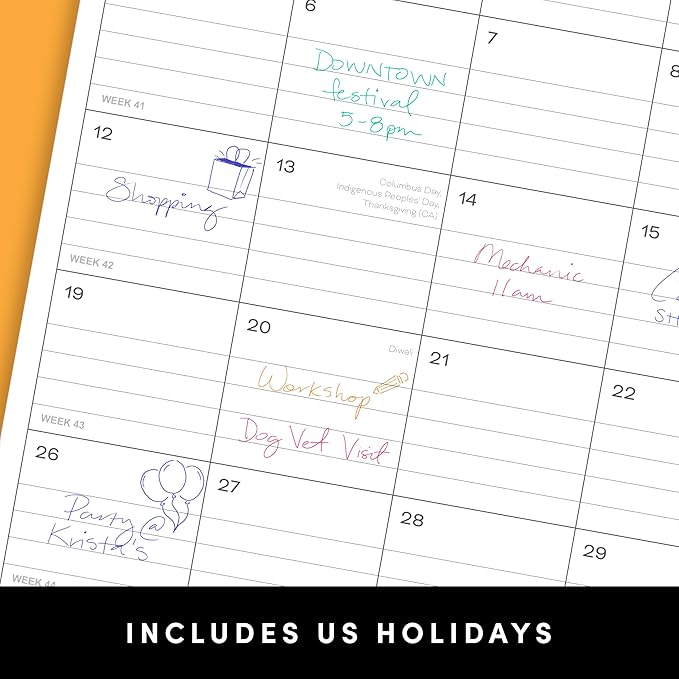 6
7
8
DOWNTOWN
festival
5-8pm
WEEK 41
12
13
Columbus Day,
Indigenous Peoples' Day,
Thanksgiving (CA)
14
15
Shopping
Mechanic
11am
WEEK 42
19
20
Diwali
21
22
Workshop
Dog Vet Visit
WEEK 43
26
27
28
29
Party @
Krista's
WEEK 44
INCLUDES US HOLIDAYS